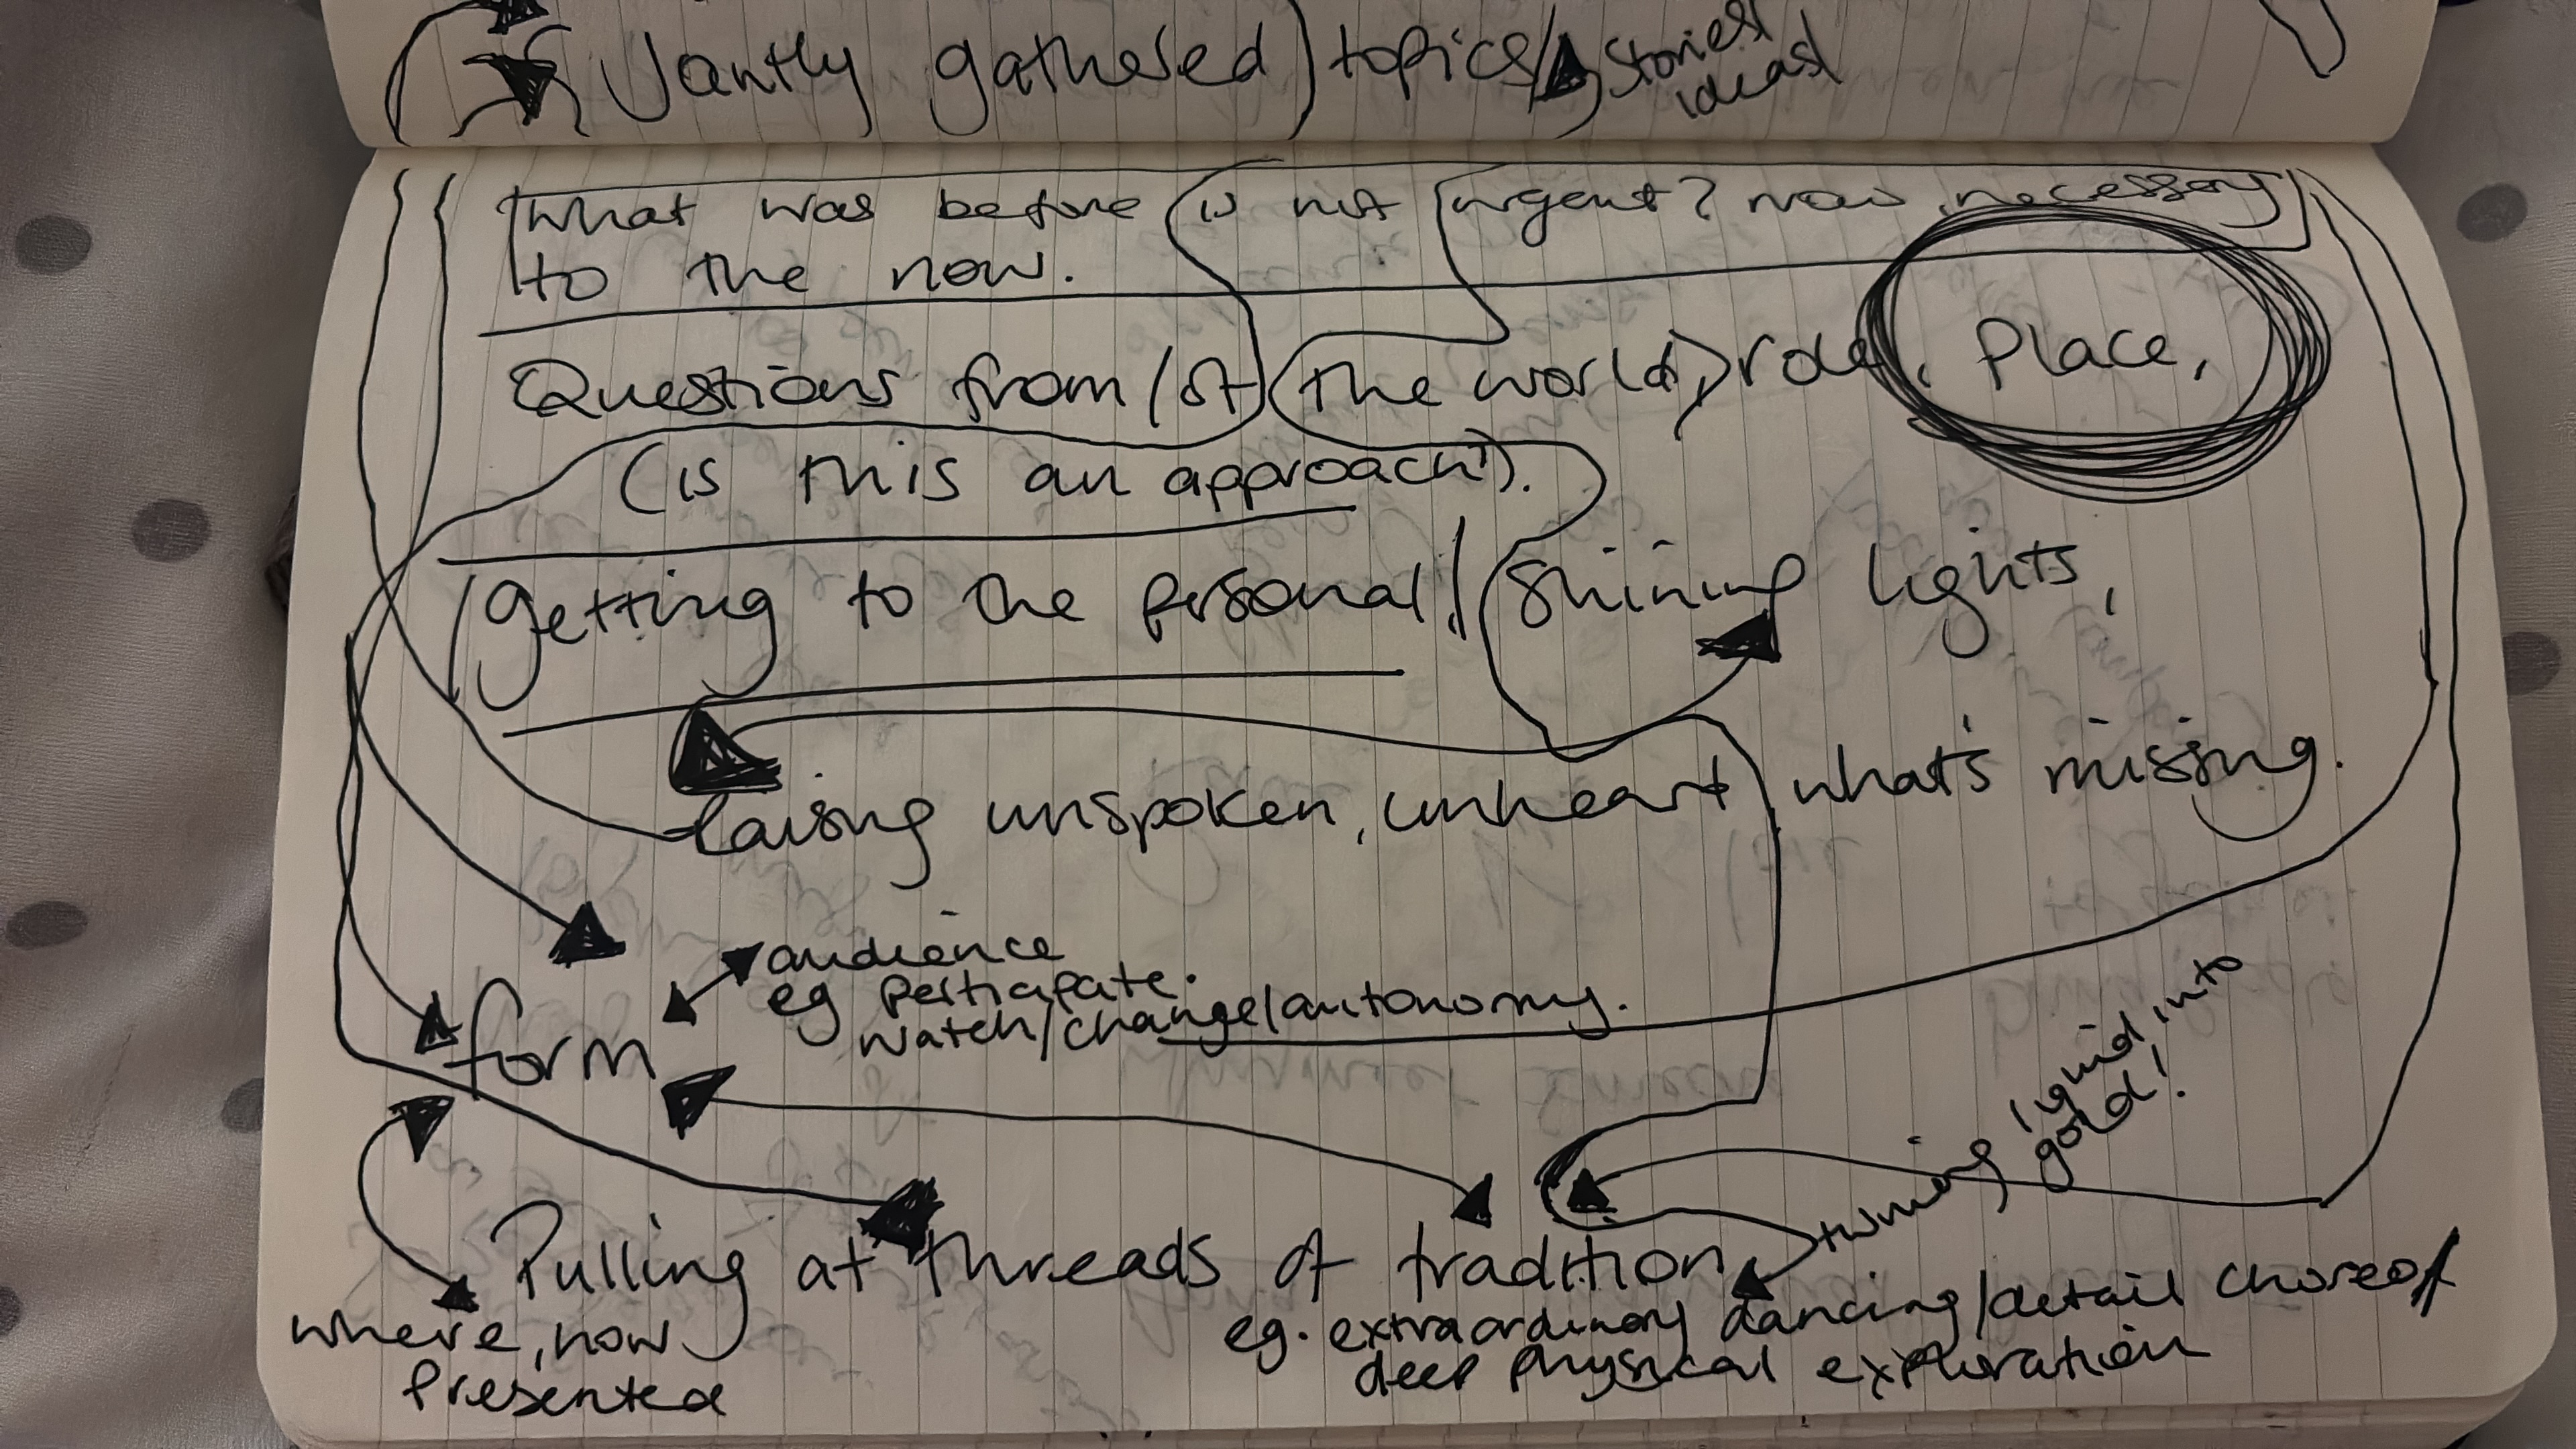 Jantly gathered) topics/ stories/
ideas/
what was before is not urgent? now, necessary
to the now.
Questions from/of the world, role, Place,
(is this an approach?).
/getting to the personal! shining lights,
raising unspoken, unheart what's missing.
audience
eg perticipate.
watch/change/autonomy.
form
turning liquid, into
gold!
Pulling at threads of tradition
where, now
Presented
eg. extraordinary dancing/detail choreo/
deep physical exploration